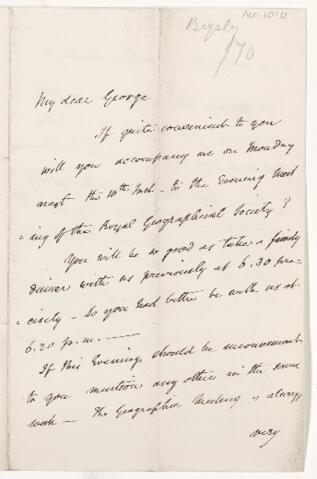 Bigsby
/70
My dear George
If quite convenient to you
will you accompany me on Monday
next the 10th Inst - to the Evening Meet
-ing of the Royal Geographical Society?
You will be so good as take a family
dinner with us previously at 6.30 pre-
cisely - So you had better be with us at
6.20 p.m.
If this Evening should be inconvenient
to you mention any other in the same
week - The Geographical Meeting is always
very